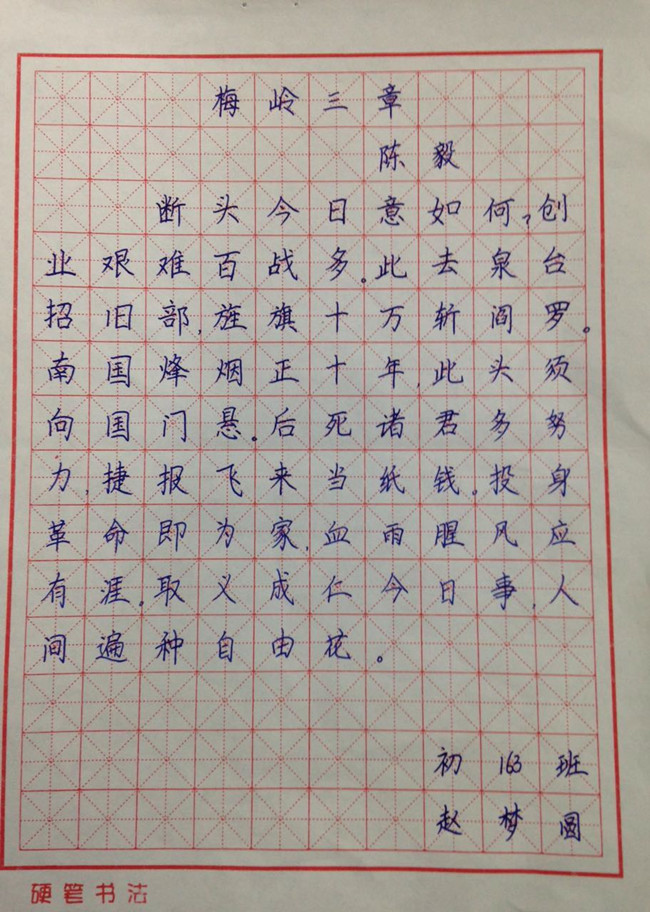 梅岭三章
陈毅
断头今日意如何?创
业艰难百战多。此去泉台
招旧部,旌旗十万斩阎罗。
南国烽烟正十年,此头须
向国门悬。后死诸君多努
力,捷报飞来当纸钱。投身
革命即为家,血雨腥风应
有涯。取义成仁今日事,人
间遍种自由花。
初163班
赵梦圆
硬笔书法